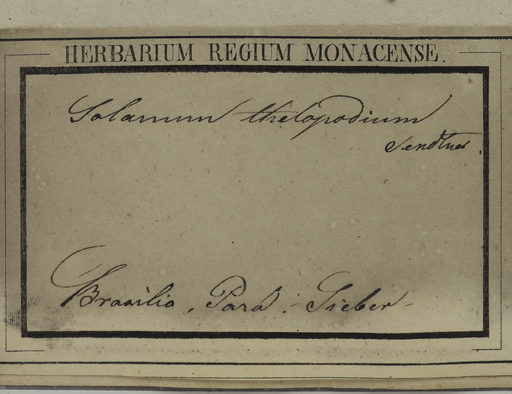 HERBARIUM REGIUM MONACENSE.
Solanum thelopodium
Sendtner.
Brasilia, Pará: Sieber